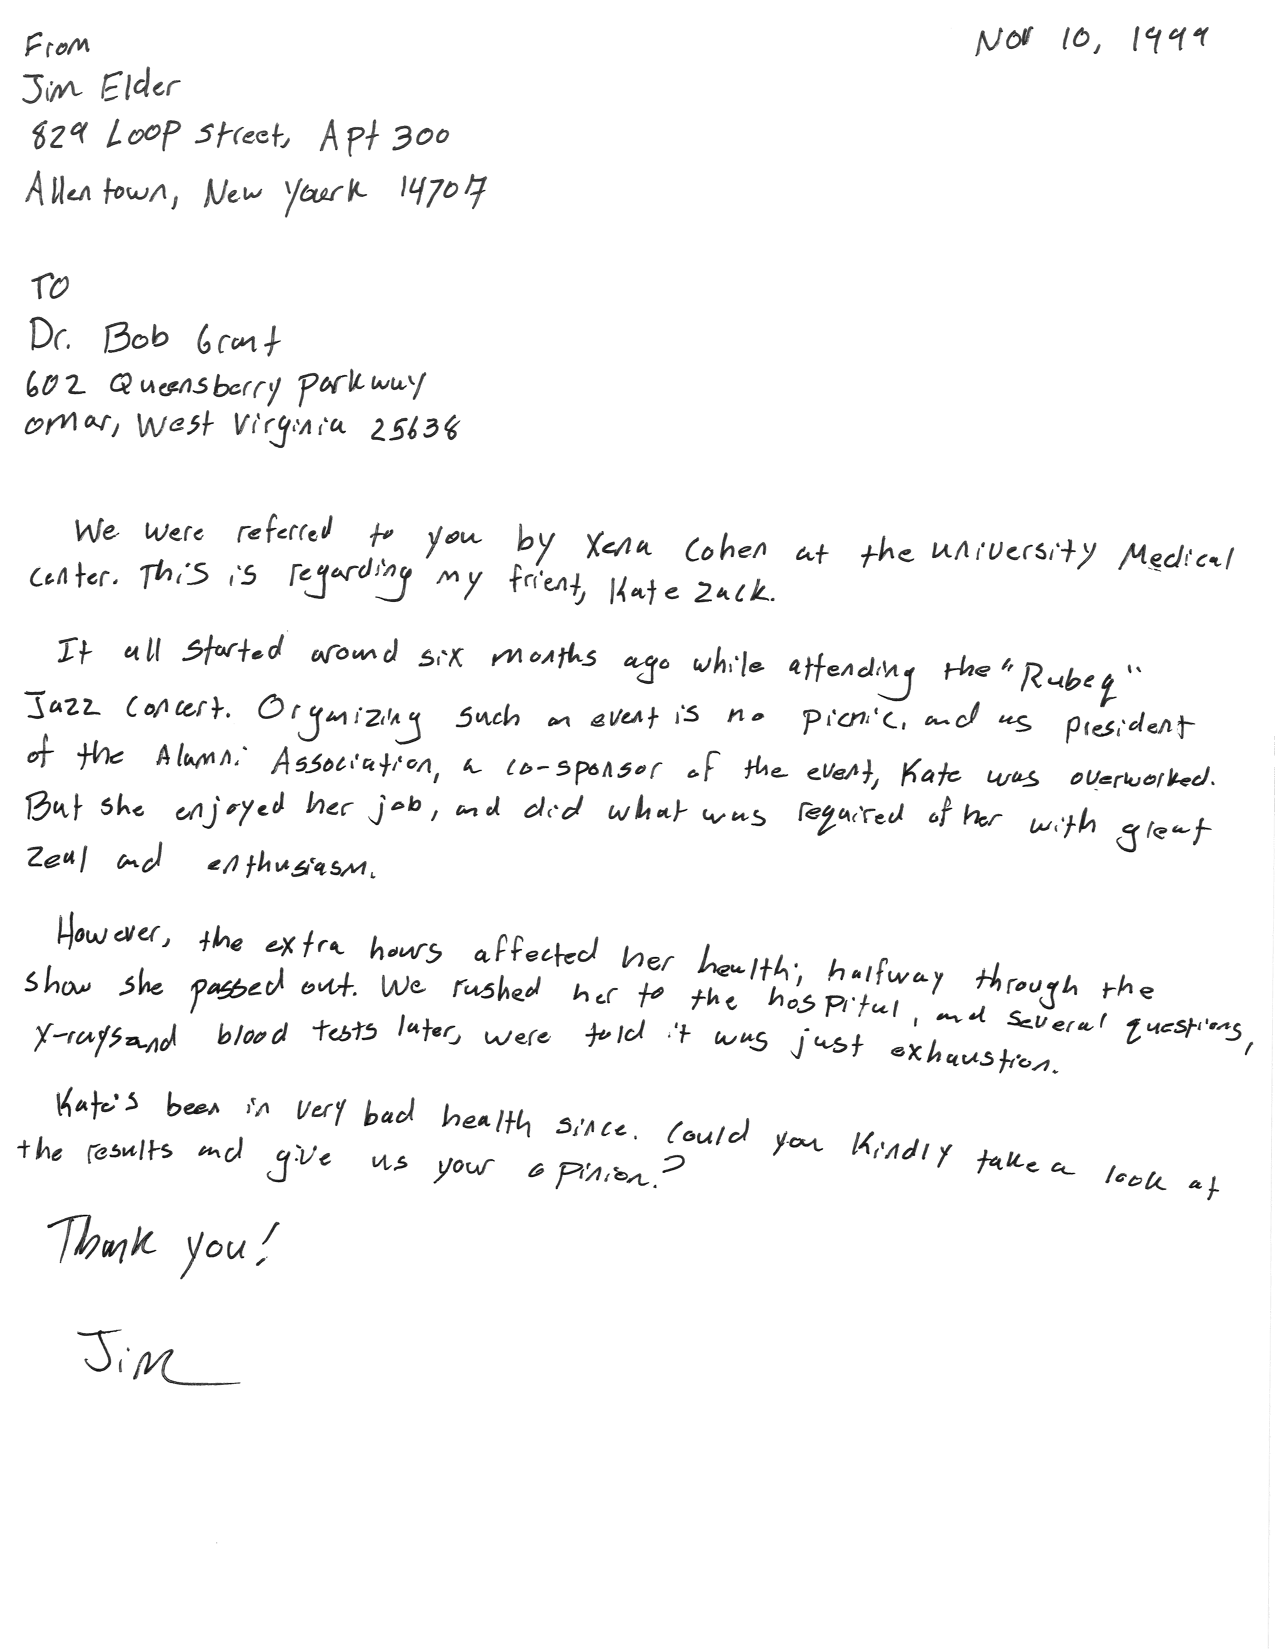 Nov 10, 1999
From
Jim Elder
829 Loop Street, Apt 300
Allentown, New York 14707
TO
Dr. Bob Grant
602 Queensberry Parkway
Omar, West Virginia 25638
We were referred to you by Xena Cohen at the University Medical
Center. This is regarding my frient, Kate Zack.
It all started around six months ago while attending the "Rubeq"
Jazz Concert. Organizing such an event is no picnic, and as president
of the Alumni Association, a co-sponsor of the event, Kate was overworked.
But she enjoyed her job, and did what was required of her with great
zeal and enthusiasm.
However, the extra hours affected her health; halfway through the
show she passed out. We rushed her to the hospital, and several questions,
x-rays and blood tests later, were told it was just exhaustion.
Kate's been in very bad health since. Could you kindly take a look at
the results and give us your opinion?
Thank you!
Jim